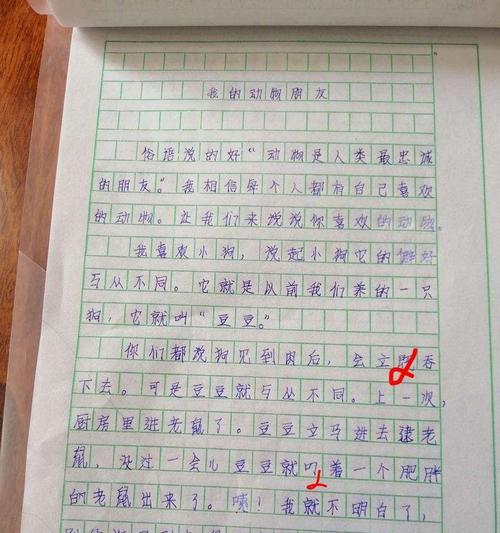 我的动物朋友
俗语说的好“动物是人类最忠诚
的朋友”。我相信每个人都有自己喜欢
的动物。让我们来说说你喜欢的动物。
我喜欢小狗，说起小狗它的
与从不同。它就是以前我们养的一只
狗，它就叫“豆豆”。
你们都说狗见到肉后，会立 吞
下去。可是豆豆就与从不同。上一次，
厨房里进老鼠了。豆豆立马进去逮老
鼠，没过一会儿豆豆就叼着一个肥胖
的老鼠出来了。咦！我就不明白了，